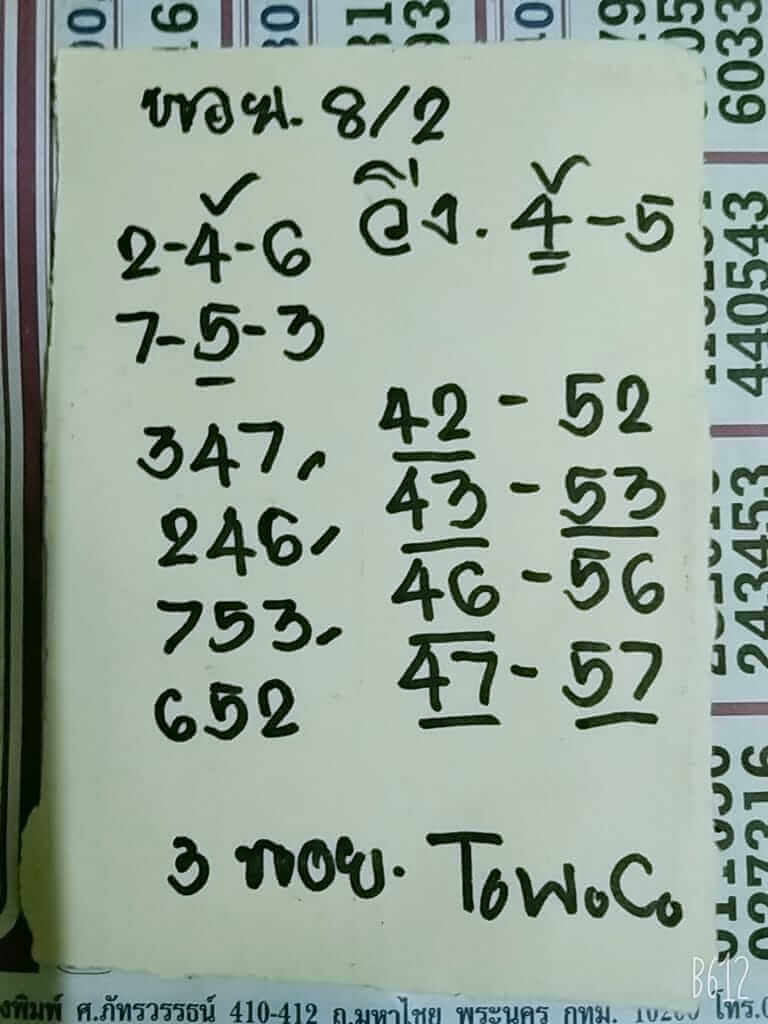 8/2
2-4-6 วิ่ง. 4-5
7-5-3
347, 42 - 52
246, 43 - 53
753, 46 - 56
652 47 - 57
3 ToWoCo
6033
440543
243453
027316
B612
ศ.ภัทรวรรธน์ 410-412 ถ.มหาไชย พระนคร กทม. 10200 โทร.